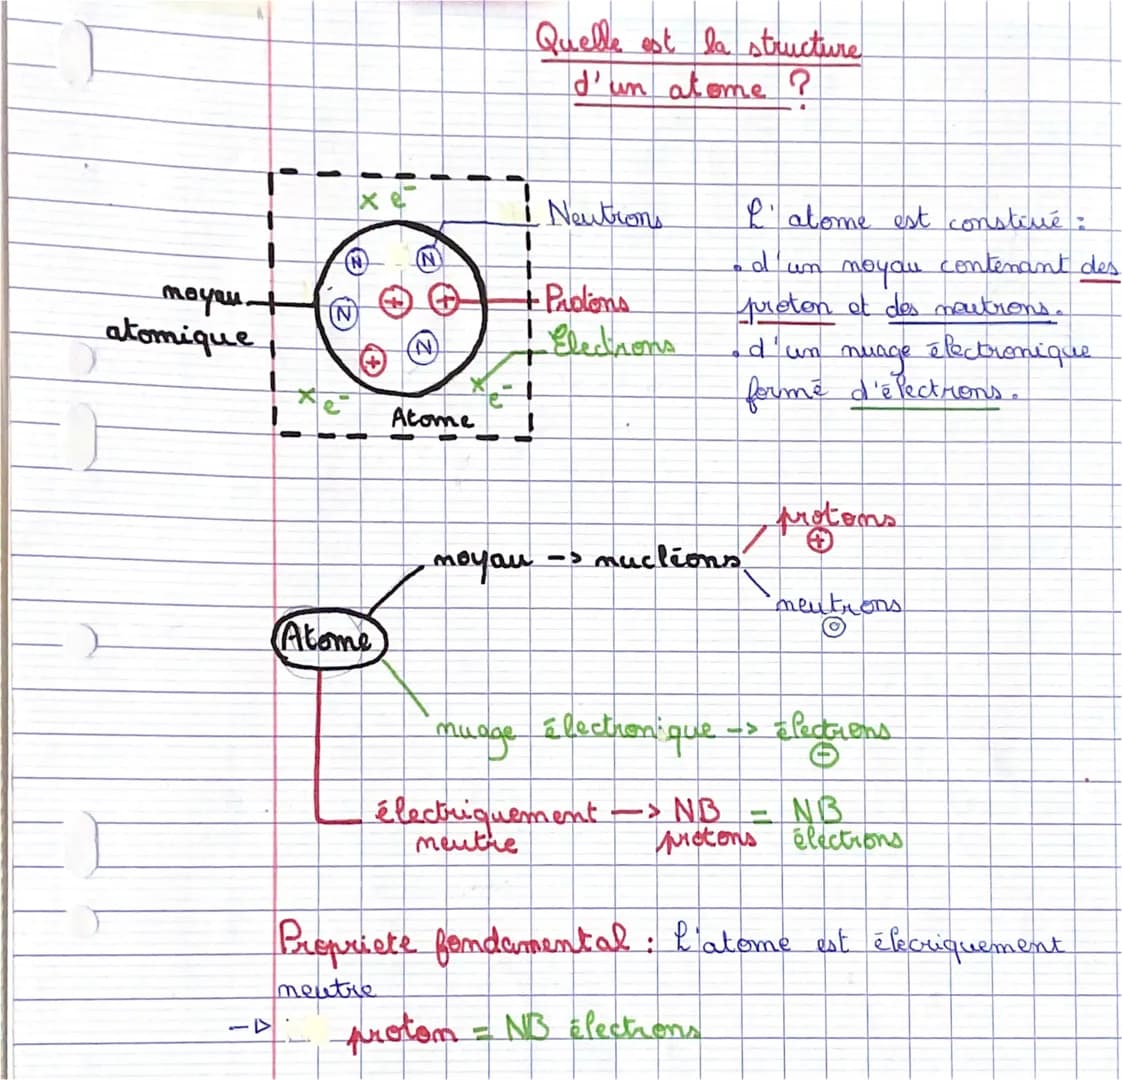 Quelle est la structure
d'un atome ?
x e⁻
Neutrons
N
N
+
+
N
Protons
noyau
atomique
Electrons
N
+
x e⁻
x e⁻
Atome
L'atome est constiué :
. d'un noyau contenant des
proton et des neutrons.
. d'un nuage électronique
formé d'électrons.
protons
+
noyau -> nucléons
neutrons
0
Atome
nuage électronique -> électrons
-
électriquement -> NB = NB
neutre protons électrons
Propriete fondamental : L'atome est élecriquement
neutre
-> proton = NB électrons